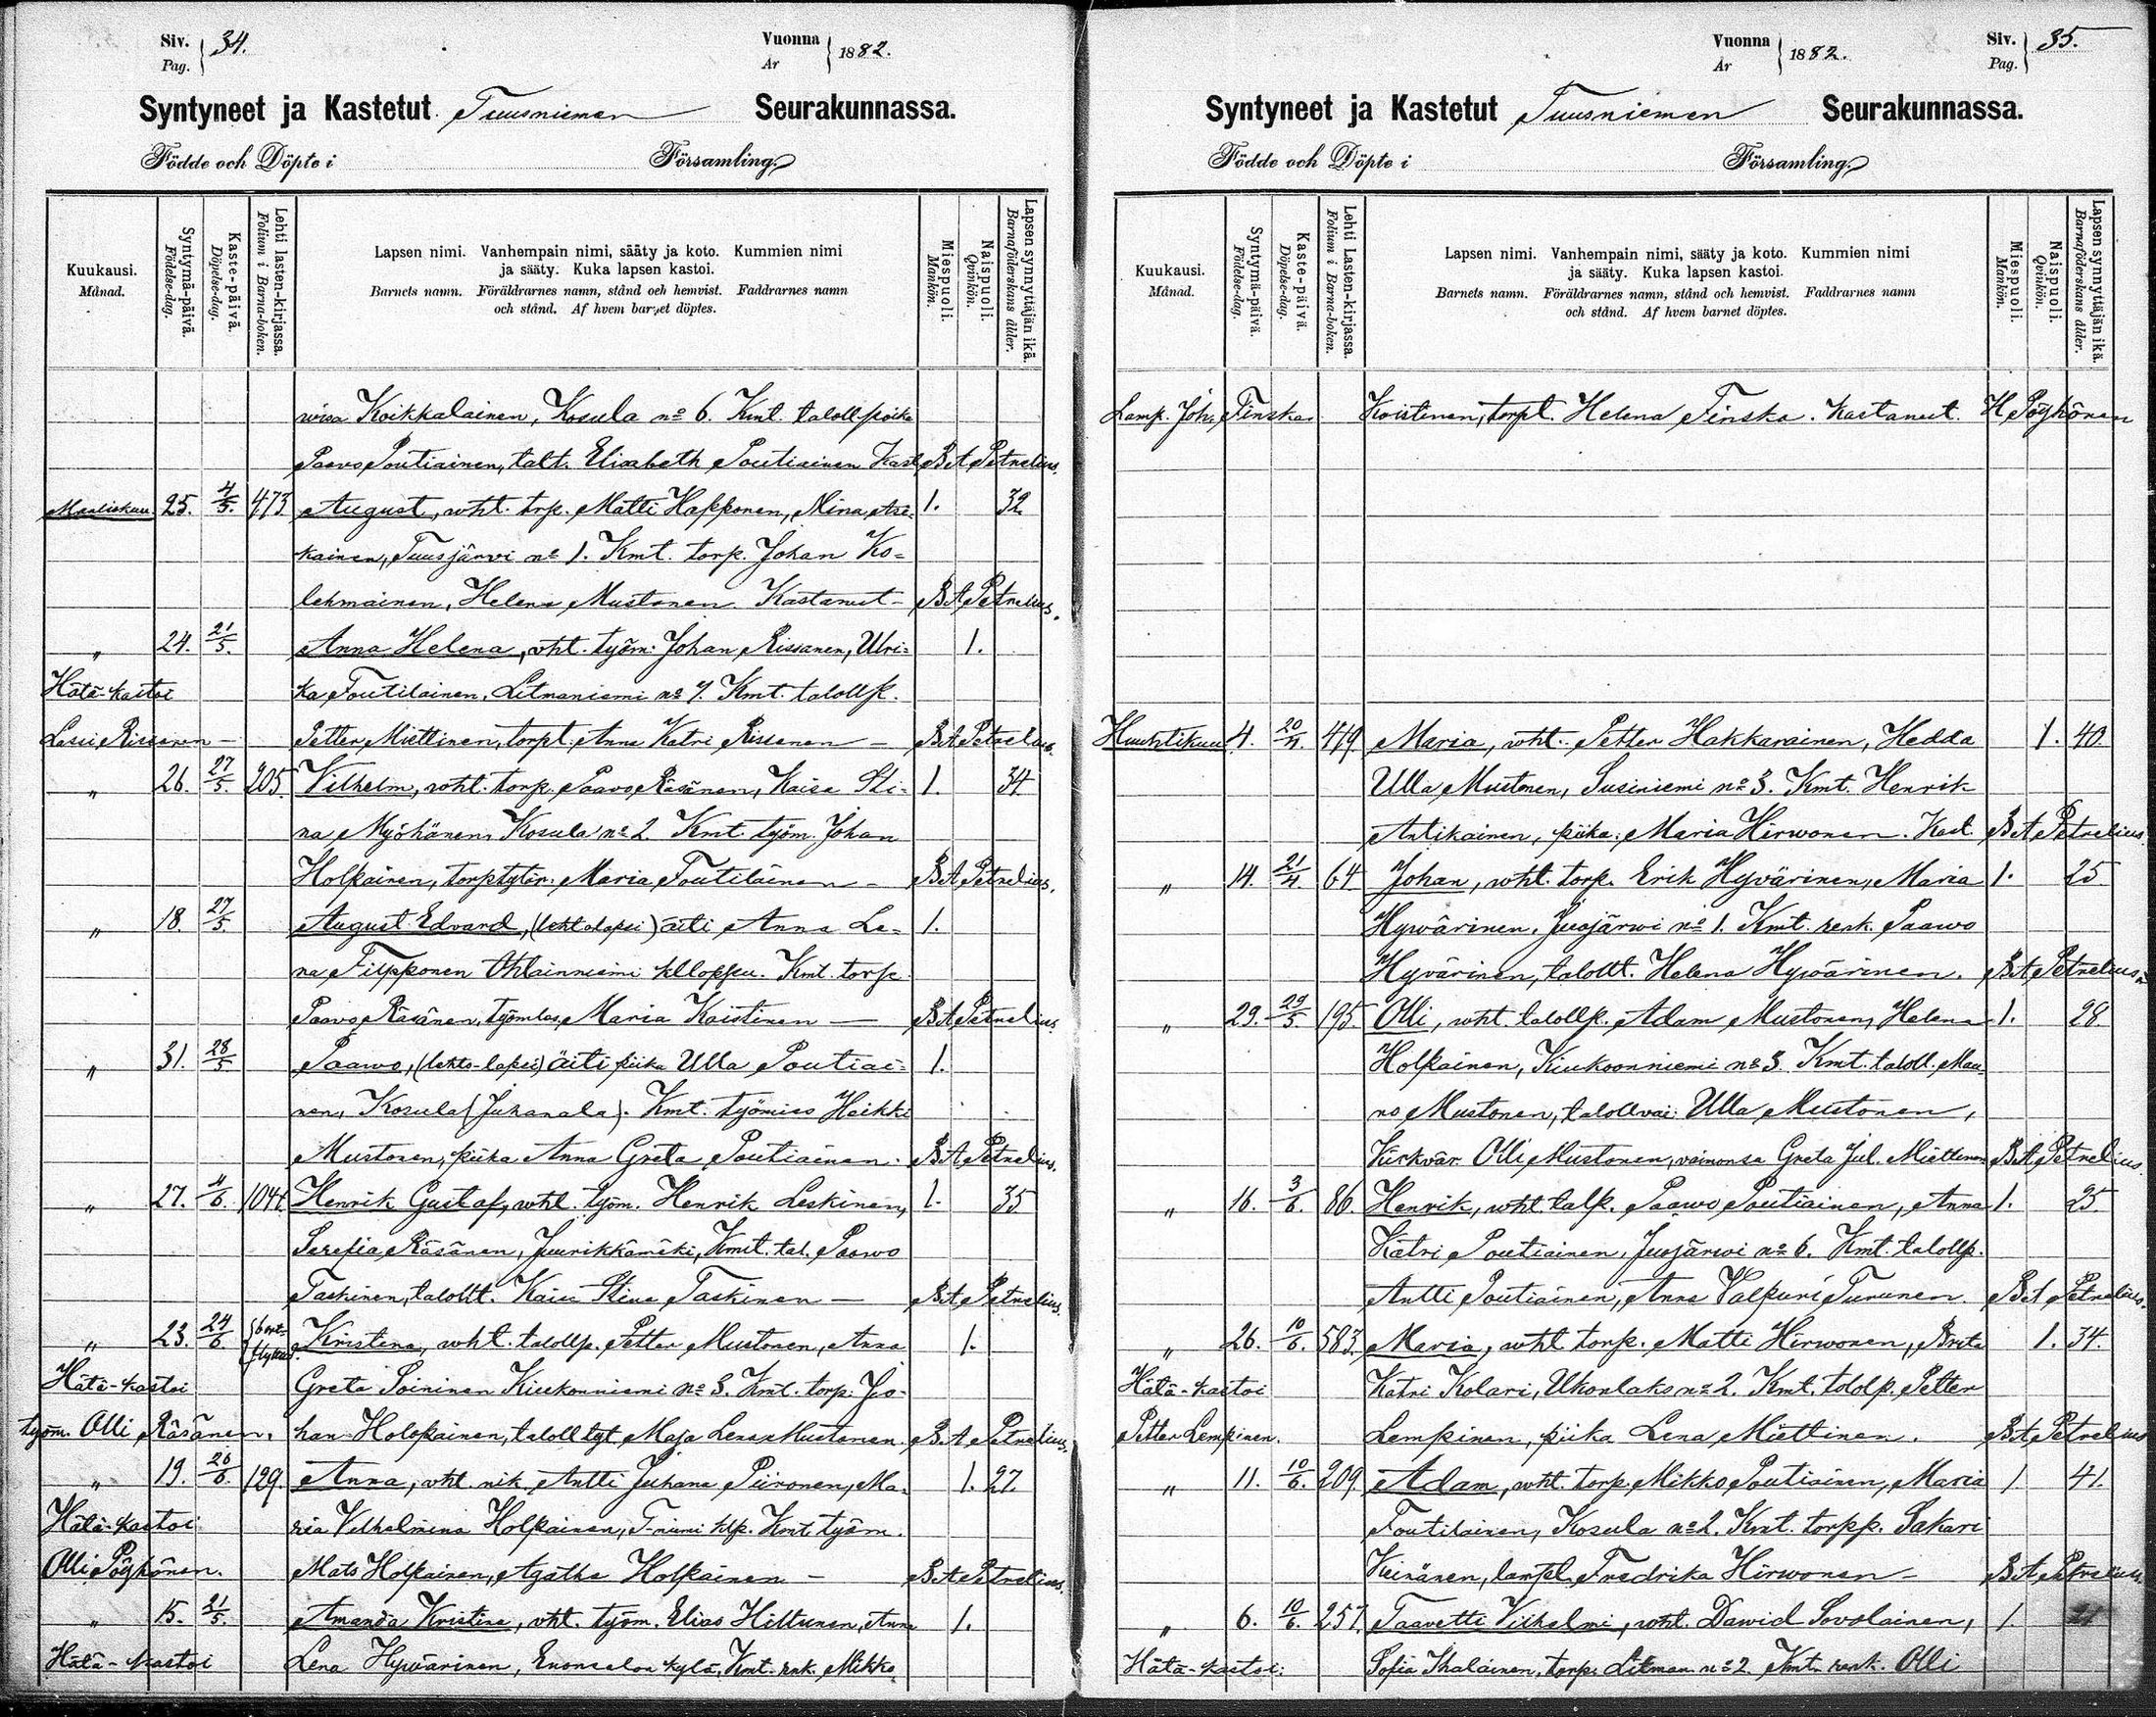 Siv. Pag. 34.
Vuonna År 1882.
Syntyneet ja Kastetut Tuusniemen Seurakunnassa.
Födde och Döpte i Församling.
Kuukausi. Månad.
Syntymä-päivä. Födelse-dag.
Kaste-päivä. Döpelse-dag.
Lehti lasten-kirjassa. Folium i Barna-boken.
Lapsen nimi. Vanhempain nimi, sääty ja koto. Kummien nimi
ja sääty. Kuka lapsen kastoi.
Barnets namn. Föräldrarnes namn, stånd och hemvist. Faddrarnes namn
och stånd. Af hvem barnet döptes.
Miespuoli. Mankön.
Naispuoli. Qvinkön.
Lapsen synnyttäjän ikä. Barnaföderskans ålder.
wisa Koikkalainen, Kosula no 6. Kmt. talollpoika
Paavo Poutiainen, talt. Elisabeth Poutiainen Kast BA Petrelius.
Maaliskuu 25. 4/5. 473 August, wht. trp. Matti Happonen, Mina Asi- 1. 32
kainen, Tuusjärvi no 1. Kmt. torp. Johan Ko-
lehmainen, Helena Mustonen Kastanut - BA Petrelius.
" 24. 21/5. Anna Helena, vht. työm. Johan Rissanen, Ulri- 1.
Hätä-kastoi ka Toutilainen, Litmaniemi no 7. Kmt. talollp.
Lassi Rissanen - Petter Miettinen, torpt. Anna Katri Rissanen - BA Petrelius.
" 26. 27/5. 205. Vilhelm, wht. torp. Paavo Räsänen, Kaisa Sti- 1. 34
na Myöhänen, Kosula no 2. Kmt. työm. Johan
Holpainen, torptytär. Maria Toutilainen - BA Petrelius.
" 18. 27/5. August Edvard, (lehtolapsi) äiti Anna Le- 1.
na Filpponen Ohtainniemi klloppu. Kmt. torp.
Paavo Räsänen, työmles. Maria Koistinen - BA Petrelius.
" 31. 28/5 Paawo, (lehto-lapsi) äiti piika Ulla Poutiai- 1.
nen, Kosula (Juhanala). Kmt. työmies Heikki
Mustonen, piika Anna Greta Poutiainen. BA Petrelius.
" 27. 4/6. 1041. Henrik Gustaf, wht. työm. Henrik Leskinen, 1. 35
Serefia Räsänen, Juurikkamäki, Kmt. tal. Paawo
Taskinen, talollt. Kaisa Stina Taskinen - BA Petrelius.
" 23. 24/6. Kristina, wht. talollp. Petter Mustonen, Anna 1.
Hätä-kastoi Greta Soininen Kiukonniemi no 3. Kmt. torp. Jo-
työm. Olli Räsänen. han Holopainen, talolltyt Maja Lena Mustonen. BA Petrelius.
" 19. 26/6. 129. Anna, vht. nik. Antti Juhana Piironen, Ma- 1. 27.
Hätä-kastoi ria Vilhelmina Holpainen, T-niemi klp. Kmt. työm.
Olli Pöyhönen. Mats Holpainen, Agatha Holpainen - BA Petrelius.
" 15. 21/5. Amanda Kristina, vht. työm. Elias Hiltunen, Anna 1.
Hätä-kastoi Lena Hyvärinen, Enonsalon kylä, Kmt. rnk. Mikko
Vuonna År 1882.
Siv. Pag. 35.
Syntyneet ja Kastetut Tuusniemen Seurakunnassa.
Födde och Döpte i Församling.
Kuukausi. Månad.
Syntymä-päivä. Födelse-dag.
Kaste-päivä. Döpelse-dag.
Lehti Lasten-kirjassa. Folium i Barna-boken.
Lapsen nimi. Vanhempain nimi, sääty ja koto. Kummien nimi
ja sääty. Kuka lapsen kastoi.
Barnets namn. Föräldrarnes namn, stånd och hemvist. Faddrarnes namn
och stånd. Af hvem barnet döptes.
Miespuoli. Mankön.
Naispuoli. Qvinkön.
Lapsen synnyttäjän ikä. Barnaföderskans ålder.
Lamp. Joh. Finska. Koistinen, torpt. Helena Finska. Kastanut. H Pöyhönen
Huuhtikuu 4. 20/4. 479 Maria, wht. Petter Hakkarainen, Hedda 1. 40.
Ulla Mustonen, Susiniemi no 3. Kmt. Henrik
Antikainen, piika. Maria Hirwonen. Kast. BA Petrelius.
" 14. 21/4. 64 Johan, wht. torp. Erik Hyvärinen, Maria 1. 25
Hywärinen, Juojärwi no 1. Kmt. renk. Paawo
Hyvärinen, talollt. Helena Hywärinen. BA Petrelius.
" 29. 29/5 195. Olli, wht. talollp. Adam Mustonen, Helena 1. 28.
Holpainen, Kiukoonniemi no 3. Kmt. taloll. Mau-
no Mustonen, talollvai. Ulla Mustonen,
Kirkvär. Olli Mustonen, vaimonsa Greta Jul. Miettinen BA Petrelius.
" 16. 3/6. 86. Henrik, wht. talp. Paawo Poutiainen, Anna 1. 25.
Katri Poutiainen, Juojärwi no 6. Kmt. talollp.
Antti Poutiainen, Anna Valpuri Turunen. BA Petrelius.
" 26. 10/6. 583. Maria, wht torp. Matti Hirwonen, Brita 1. 34.
Hätä-kastoi Katri Kolari, Ukonlaks no 2. Kmt. tololp. Petter
Petter Lempinen. Lempinen, piika Lena Miettinen. BA Petrelius
" 11. 10/6. 209. Adam, wht. torp. Mikko Poutiainen, Maria 1 41.
Toutilainen, Kosula no 2. Kmt. torpp. Sakari
Keinänen, lampt. Fredrika Hirwonen - BA Petrelius.
" 6. 10/6. 257. Taavetti Vilhelmi, wht. Dawid Sovolainen, 1.
Hätä-kastoi. Sofia Ihalainen, torp. Litman. no 2. Kmt. renk. Olli